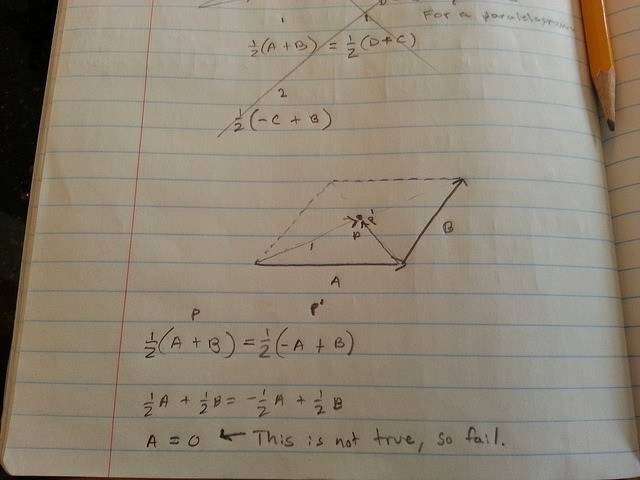 For a
1
1
½(A + B) = ½(D + C)
2
½(-C + B)
P'
P
1
B
A
P P'
½(A + B) = ½(-A + B)
½A + ½B = -½A + ½B
A = 0 ← This is not true, so fail.